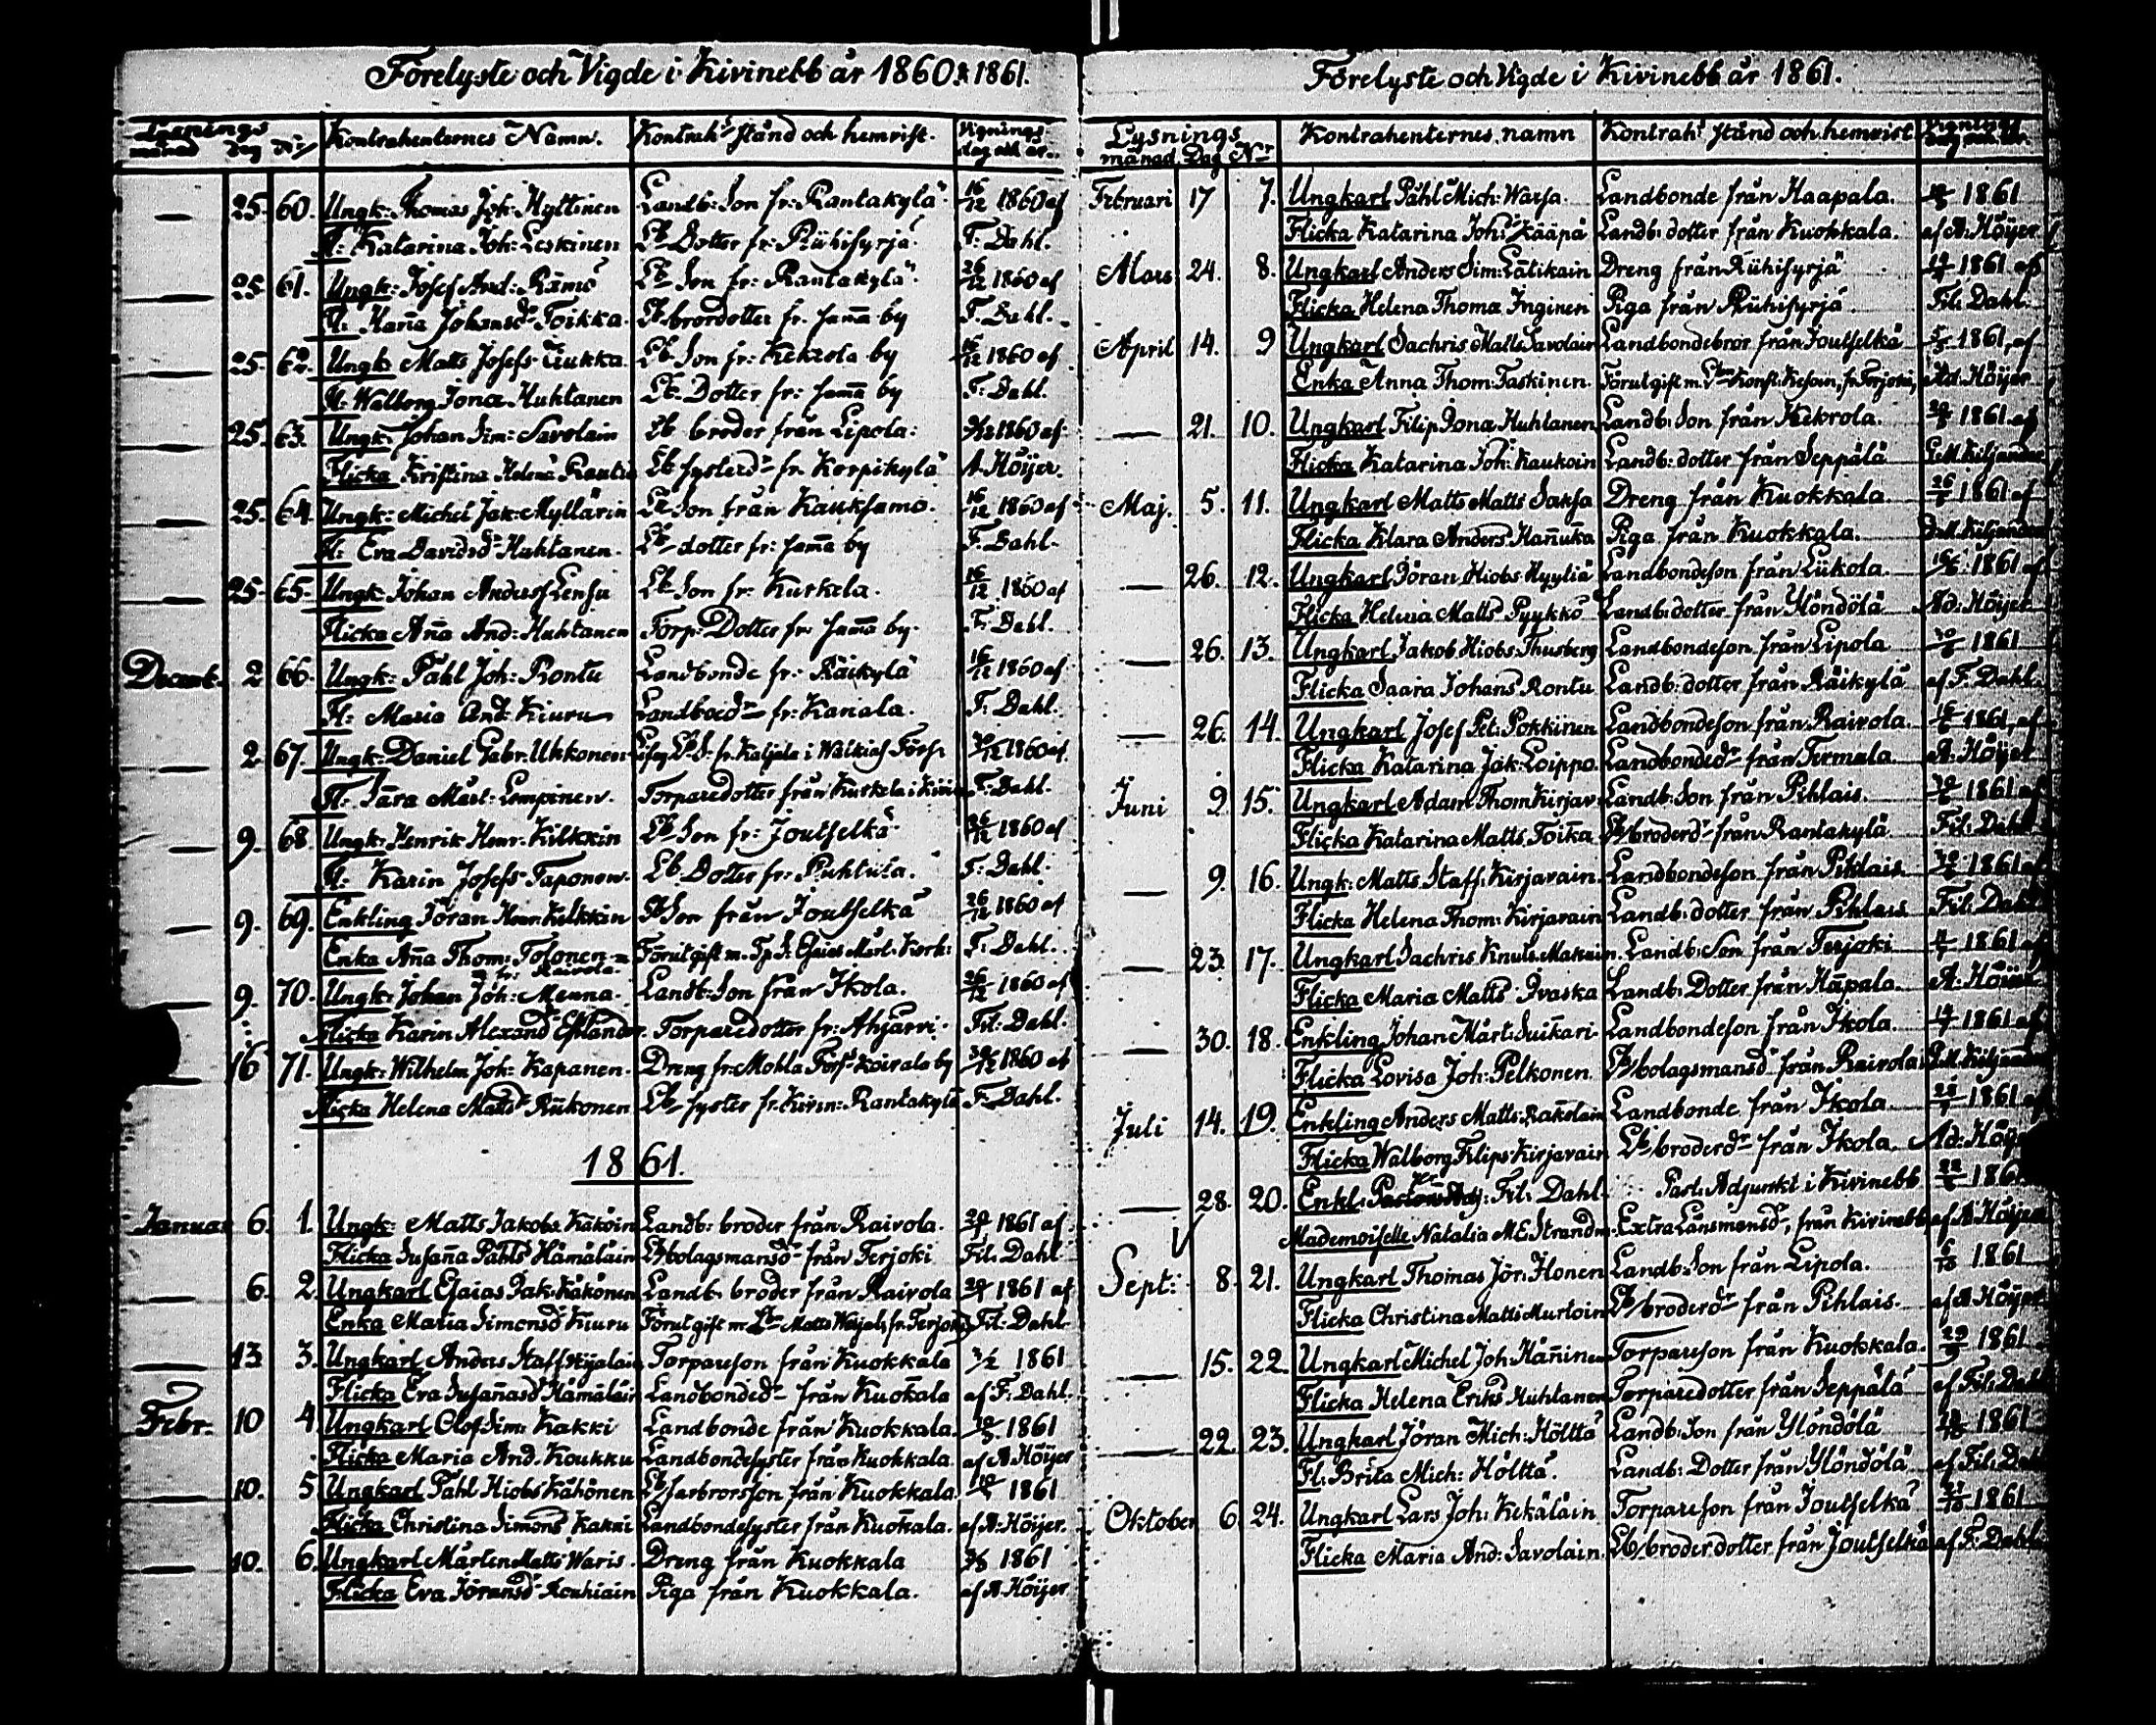 Förelyste och Vigde i Kivinebb år 1860 & 1861.
Lysnings månad dag Nr Kontrahenternes Namn. Kontrah:s stånd och hemvist. Vignings dag och år.
— 25. 60. Ungk: Thomas Joh: Hyttinen Landb: Son fr: Rantakylä. 16/12 1860 af
Fl: Katarina Joh: Leskinen Lb Dotter fr: Riihisyrjä. F: Dahl.
— 25. 61. Ungk: Josef And: Rämö Lb Son fr: Rantakylä. 26/12 1860 af
Fl: Hana Johansdr Toikka. Lb brordotter fr. sama by F. Dahl.
— 25. 62. Ungk: Matts Josefs Tiukka. Lb Son fr: Kekrola by 16/12 1860 af
Fl: Walborg Jona Huhtanen Lb Dotter fr: sama by F. Dahl.
— 25. 63. Ungk: Johan Sim: Savolain Lb broder från Lipola: 1860 af
Flicka Kristina Helena Rautia Lb systerdr fr. Korpikylä A. Höijer.
— 25. 64. Ungk: Michel Jak: Myllärin Lb Son från Kauksamo. 16/12 1860 af
Fl: Eva Davidsdr Huhtanen. Lb dotter fr: sama by F. Dahl.
— 25. 65. Ungk: Johan Anderss Lensu Lb Son fr: Kurkela. 16/12 1860 af
Flicka Aña And: Huhtanen Torp: Dotter fr: sama by. F: Dahl.
Decemb. 2 66. Ungk: Påhl Joh: Rontu Landbonde fr: Räikylä 16/12 1860 af
Fl: Maria And: Kiuru Landbodr fr: Kanala. F. Dahl.
— 2. 67. Ungk: Daniel Gabr: Ukkonen fr. Kaljala i Walkjas Förs: 30/12 1860 af.
Fl: Sara Mårt: Lempinen. Torparedotter från Kurkela i Kivin F. Dahl.
— 9. 68. Ungk: Henrik Henr: Kilkkin Lb Son fr: Joutselkä. 26/12 1860 af
Fl: Karin Josefs Taponen. Lb. Dotter fr: Puhtula. F: Dahl.
— 9. 69. Enkling Jöran Henr: Kilkkin Lb Son från Joutselkä 26/12 1860 af
Enka Aña Thom: Tolonen fr: Raivola. Förut gift m. Tp S. Esaias Mårt. Kork: F: Dahl.
— 9. 70. Ungk: Johan Joh: Menna. Landb: Son från Ikola. 26/12 1860 af
Flicka Karin Alexandr Eklander. Torparedotter fr: Ahjärvi. Fil: Dahl.
— 16 71. Ungk: Wilhelm Joh: Kapanen. Dreng fr: Mohla Förs: Koirala by 30/12 1860 af
Flicka Helena Mattsdr Riikonen. Lb syster fr. Kivin: Rantakylä F. Dahl.
1861.
Januar 6. 1. Ungk: Matts Jakobs Käköin Landb: broder från Raivola. 1861 af.
Flicka Susaña Påhls Hämäläin Lb bolagsmansdr från Terjoki Fil: Dahl
— 6. 2. Ungkarl Esaias Jak: Käkönen Landb. broder från Raivola 1861 af
Enka Maria Simonsdr Kiuru Förut gift m: Lbn Matts fr. Terjoki Fil: Dahl
— 13. 3. Ungkarl Anders Staff Torpareson från Kuokkala 3/2 1861
Flicka Eva Susañasdr Hämäläin Landbondedr från Kuokala af F. Dahl.
Febr. 10 4. Ungkarl Olof Sim: Kakki Landbonde från Kuokkala. 1861
Flicka Maria And. Koukku Landbondesyster från Kuokkala. af A Höijer
— 10. 5. Ungkarl Påhl Hiobs Kähönen Lb farbrorsson från Kuokkala. 1861
Flicka Christina Simons Kakki Landbondesyster från Kuokala. af A: Höijer.
— 10. 6. Ungkarl Mårten Matts Waris. Dreng från Kuokkala 1861
Flicka Eva Jöransdr Rouhiain Piga från Kuokkala. af A. Höijer
Förelyste och Vigde i Kivinebb år 1861.
Lysnings månad. Dag Nr Kontrahenternes namn Kontrah:s stånd och hemvist
Februari 17 7. Ungkarl Påhl Mich: Warsa. Landbonde från Haapala. 1861
Flicka Katarina Joh: Kääpä Landb: dotter från Kuokkala. af A. Höijer.
Mars 24. 8. Ungkarl Anders Sim: Lätikain Dreng från Riihisyrjä 1861 af
Flicka Helena Thoma Inginen Piga från Riihisyrjä. Fil: Dahl.
April 14. 9 Ungkarl Sachris Matts Savolain Landbondebror från Joutselkä 5/5 1861, af
Enka Anna Thom: Taskinen. Förut gift m. Lbn Konst: fr. Terjoki, Ad. Höijer
— 21. 10. Ungkarl Filip Jona Huhtanen Landb: Son från Kekrola. 1861 af
Flicka Katarina Joh: Kaukoin Landb: dotter från Seppälä G.M. Kiljander
Maj. 5. 11. Ungkarl Matts Matts Saksa Dreng från Kuokkala. 26/5 1861 af
Flicka Klara Anders Hañuka Piga från Kuokkala. G.M. Kiljander
— 26. 12. Ungkarl Jöran Hiobs Hyyliä Landbondeson från Liikola. 16/6 1861 af
Flicka Helena Matts Pyykkö Landb: dotter från Ylöndölä Ad. Höijer
— 26. 13. Ungkarl Jakob Hiobs Thusberg Landbondeson från Lipola. 1861
Flicka Saara Johans Rontu Landb: dotter från Räikylä af F. Dahl.
— 26. 14. Ungkarl Josef Pet: Pokkinen Landbondeson från Raivola. 1861, af
Flicka Katarina Jak: Loippo Landbondedr från Termala. A. Höijer
Juni 9. 15. Ungkarl Adam Thom Kirjav. Landb: Son från Pihlais. 1861 af
Flicka Katarina Matts Toikka Lb broderdr från Rantakylä. Fil: Dahl
— 9. 16. Ungk: Matts Staff: Kirjavain. Landbondeson från Pihlais. 1861 af
Flicka Helena Thom: Kirjavain Landb: dotter från Pihlais Fil: Dahl
— 23. 17. Ungkarl Sachris Knuts Makuin. Landb: Son från Terjoki 1861 af
Flicka Maria Matts Ivaska Landb: Dotter från Hapala. A: Höijer
— 30. 18. Enkling Johan Mårt: Suikari Landbondeson från Ikola. 14/7 1861 af
Flicka Lovisa Joh: Pelkonen Lb bolagsmansdr från Raivola G.M. Kiljander
Juli 14. 19. Enkling Anders Matts: Landbonde från Ikola 28/7 1861 af
Flicka Walborg Filips Kirjavain Lb broderdr från Ikola Ad: Höij
— 28. 20. Enkl. Past. Adj: Fil: Dahl. Past: Adjunkt i Kivinebb 186
Mademoiselle Natalia M E Strandm. Extra Länsmansdr, från Kivinebb, af A Höijer
Sept: 8. 21. Ungkarl Thomas Jör: Ilonen Landb: Son från Lipola. 6/10 1861
Flicka Christina Matts Murtoin Lb broderdr från Pihlais. af A Höijer
— 15. 22. Ungkarl Michel Joh: Häñinen Torpareson från Kuokkala. 29/9 1861
Flicka Helena Eriks Huhtanen Torparedotter från Seppälä af Fil: Dahl
— 22. 23. Ungkarl Jöran Mich: Hölttä Landb: Son från Ylöndölä 1861
Fl. Brita Mich: Hölttä. Landb: Dotter från Ylöndölä af Fil: Dahl
Oktober 6. 24. Ungkarl Lars Joh: Kekäläin Torpareson från Joutselkä 1861
Flicka Maria And: Savolain. Lb broder dotter från Joutselkä af F. Dahl